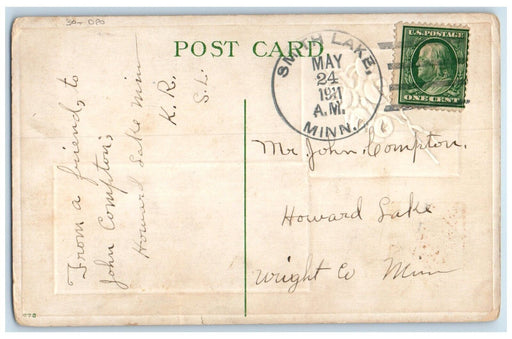 30- DPO
POST CARD
SMITH LAKE,
MAY
24
1911
A.M.
MINN.
U.S. POSTAGE
ONE CENT
From a friend, to
John Compton,
Howard Lake Minn
K. R.
S. L.
Mr. John. Compton.
Howard Lake
Wright Co Minn